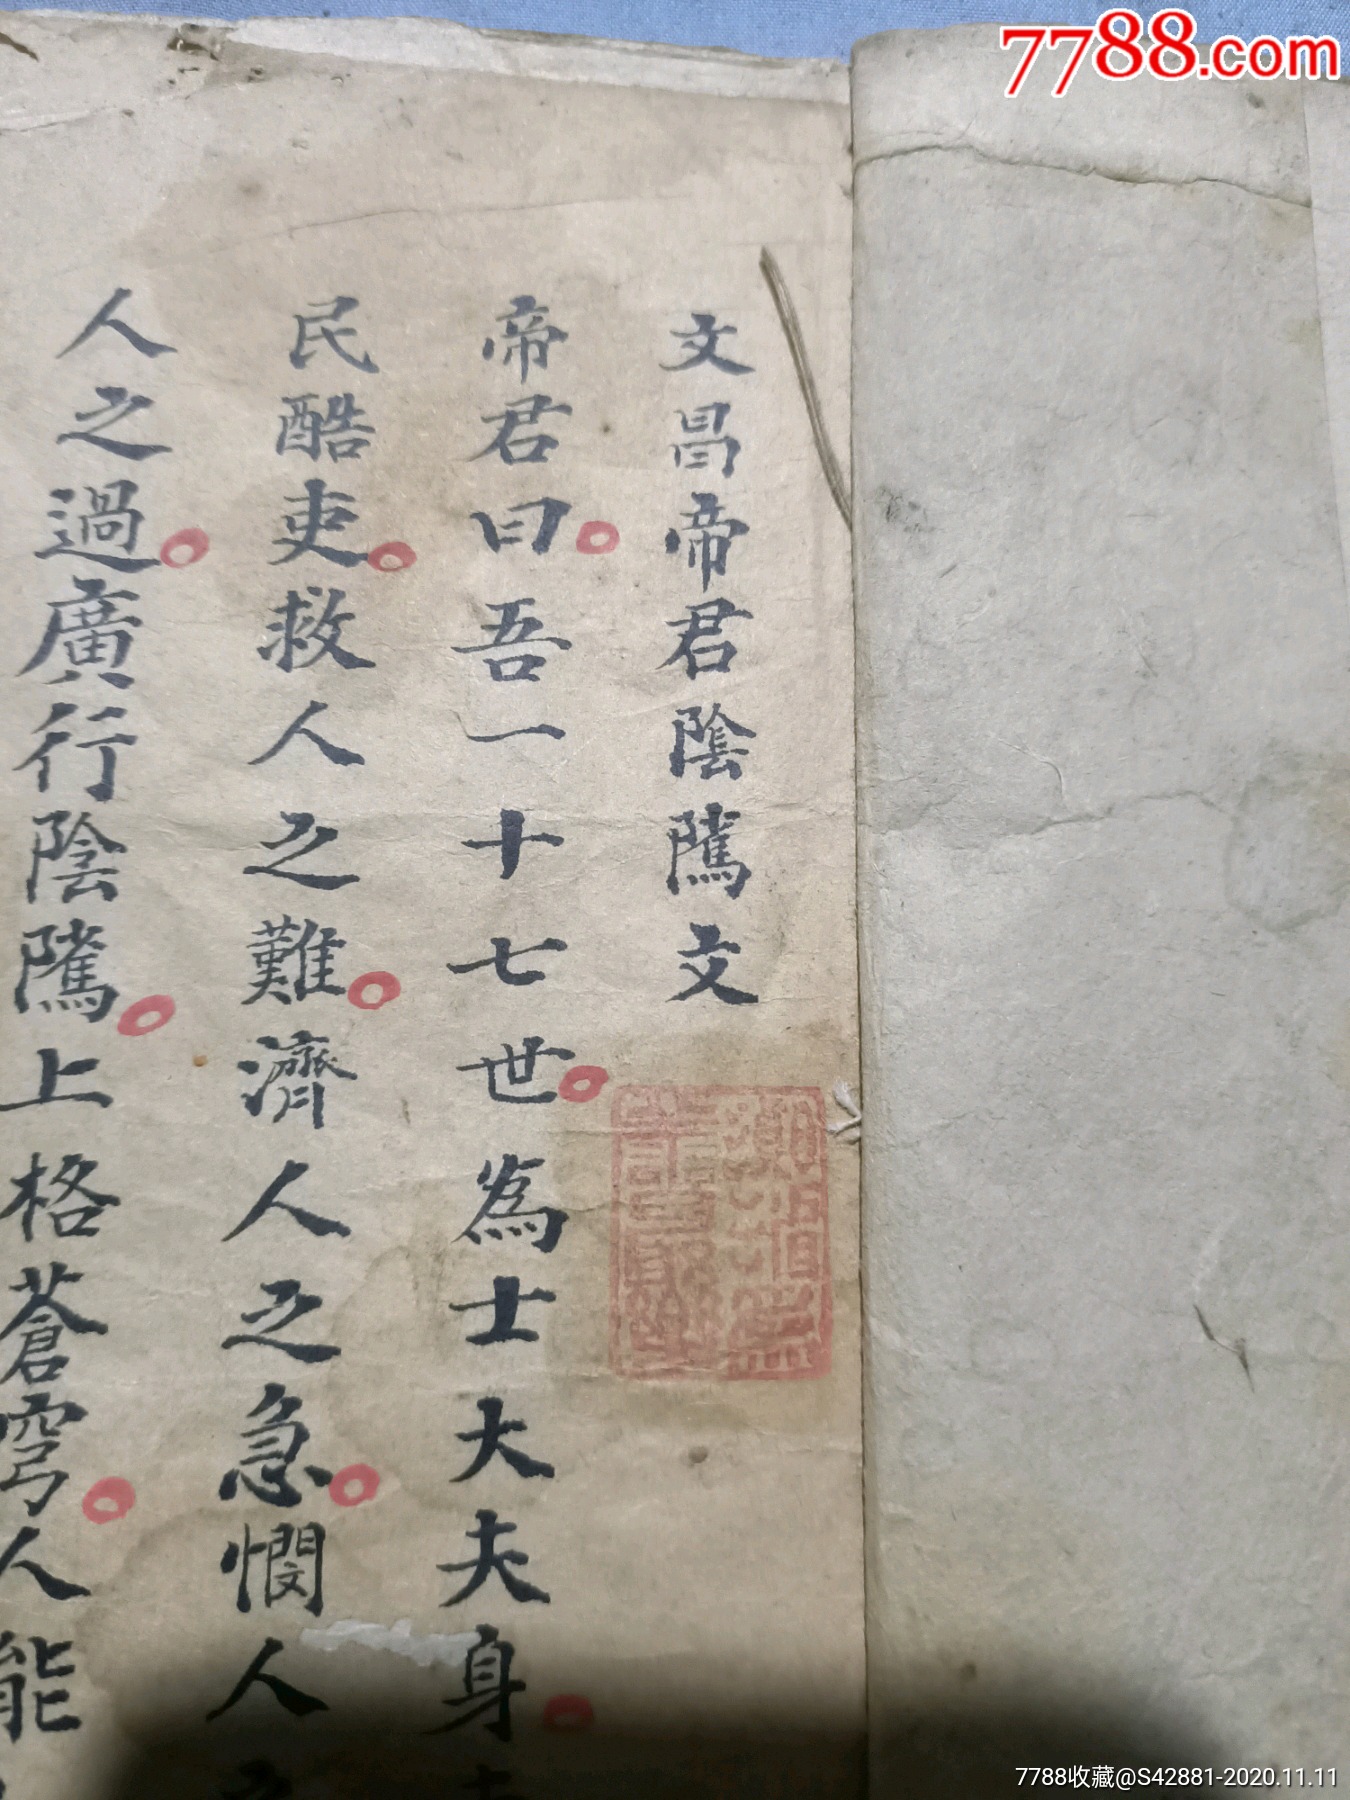 7788.com
文昌帝君陰隲文
帝君曰吾一十七世為士大夫身
民酷吏救人之難濟人之急憫人
人之過廣行陰隲上格蒼穹人能
7788收藏@S42881-2020.11.11